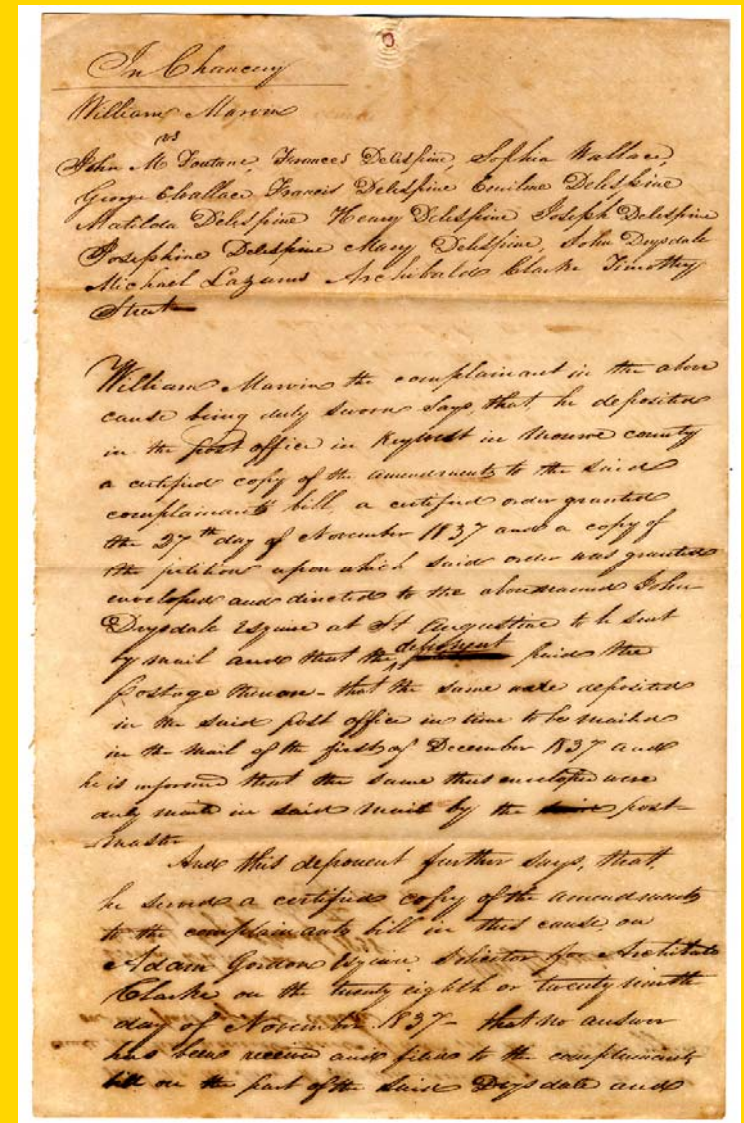 In Chancery
William Marvin
vs
John M Fontane, Frances Delespine, Sophia Wallace,
George Wallace Francis Delespine Emiline Delespine
Matilda Delespine Henry Delespine Joseph Delespine
Josephine Delespine Mary Delespine, John Drysdale
Michael Lazarus Archibald Clarke Timothy
Street
William Marvin the complainant in the above
cause being duly sworn says, that, he deposited
in the post office in Keywest in Monroe county
a certified copy of the amendments to the said
complainants bill, a certified order granted
the 27th day of November 1837 and a copy of
the petition upon which said order was granted
enveloped and directed to the abovenamed John
Drysdale Esquire at St Augustine to be sent
by mail and that the deponent paid the
postage thereon - that the same were deposited
in the said post office in time to be mailed
in the mail of the first of December 1837 and
he is informed that the same thus enveloped were
duly sent in said mail by the post-
master
And this deponent further says, that,
he served a certified copy of the amendments
to the complainants bill in this cause, on
Adam Gordon Esquire Solicitor for Archibald
Clarke on the twenty eighth or twenty ninth
day of November 1837 - that no answer
has been received and filed to the complainants
bill on the part of the said Drysdale and